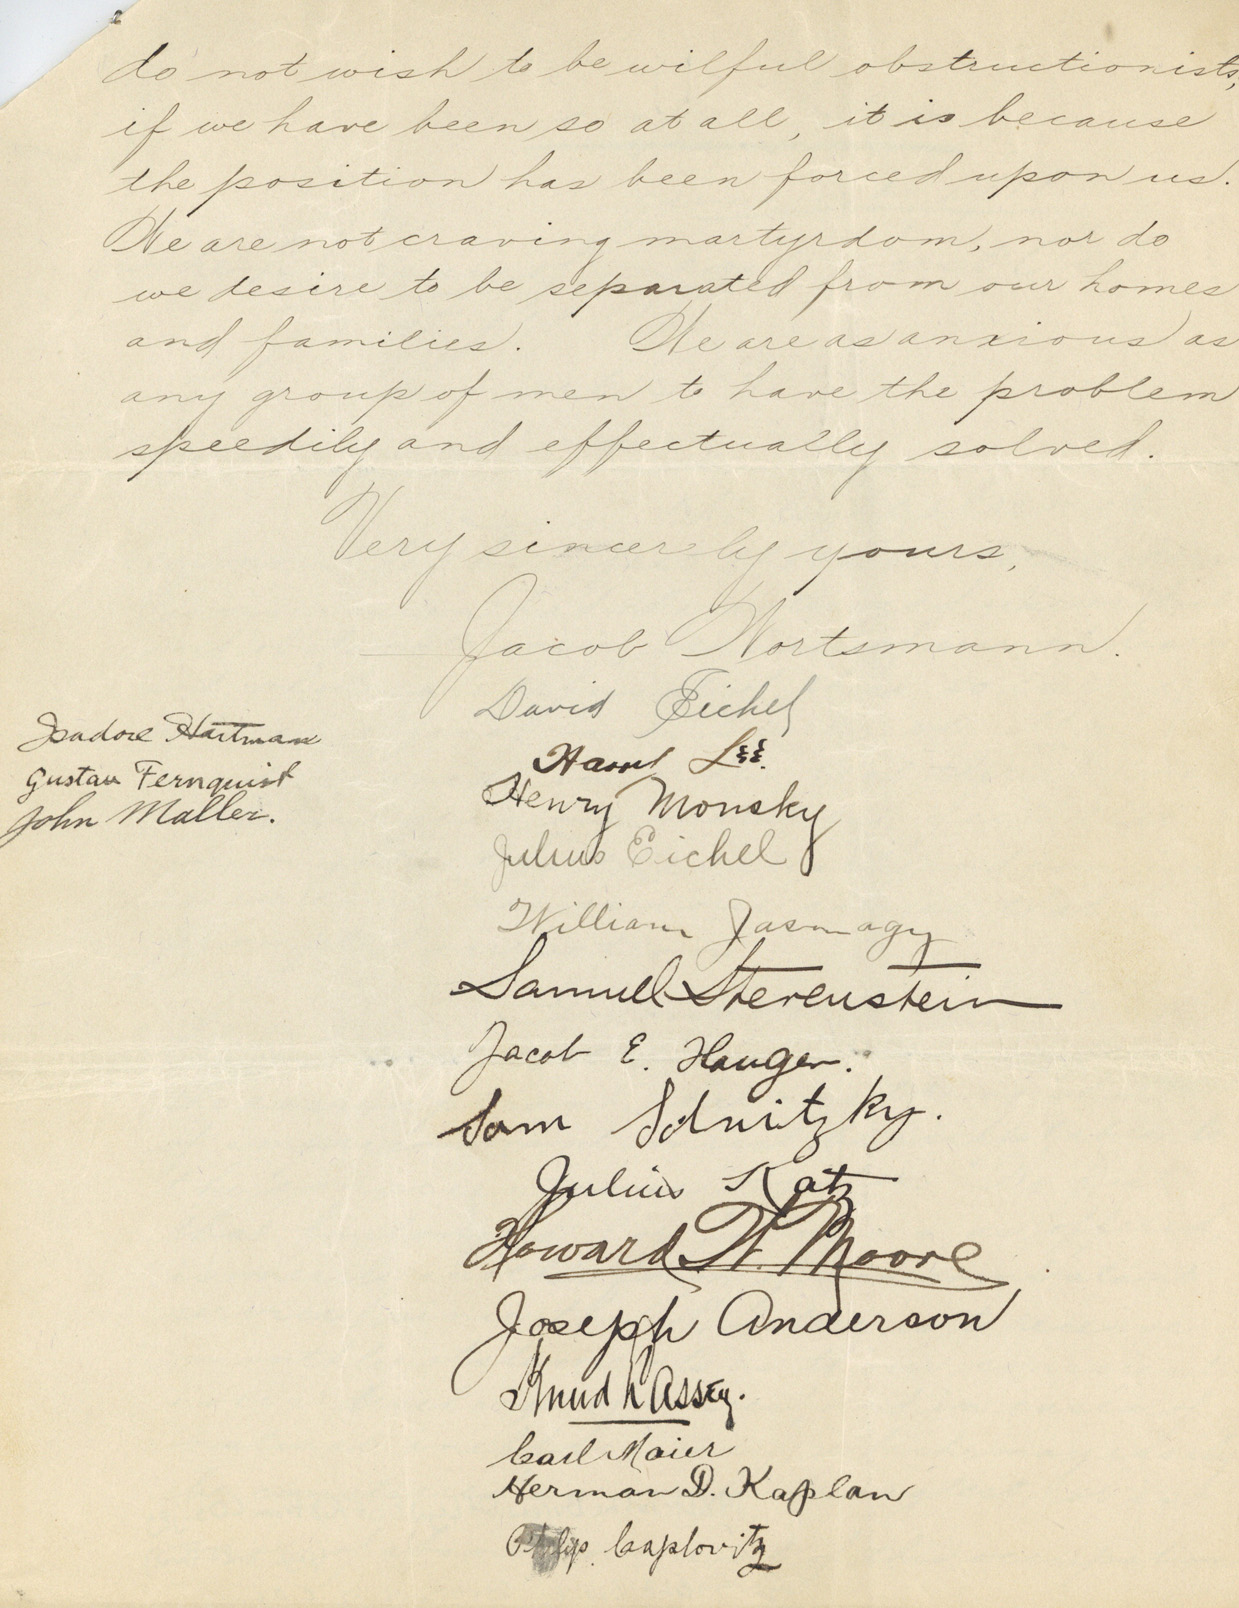 do not wish to be wilful obstructionists,
if we have been so at all, it is because
the position has been forced upon us.
We are not craving martyrdom, nor do
we desire to be separated from our homes
and families. We are as anxious as
any group of men to have the problem
speedily and effectually solved.
Very sincerely yours,
Jacob Wortsmann.
David Eichel
Lee.
Henry Monsky
Julius Eichel
William Jasmagy
Samuell Sterenstein
Jacob E. Hauger.
Sam
Julius Katz
Howard W. Moore
Joseph Anderson
Knud
Carl Maier
Herman D. Kaplan
Philip Caplovitz
Isadore Hartman
Gustav Fernquist
John Maller.